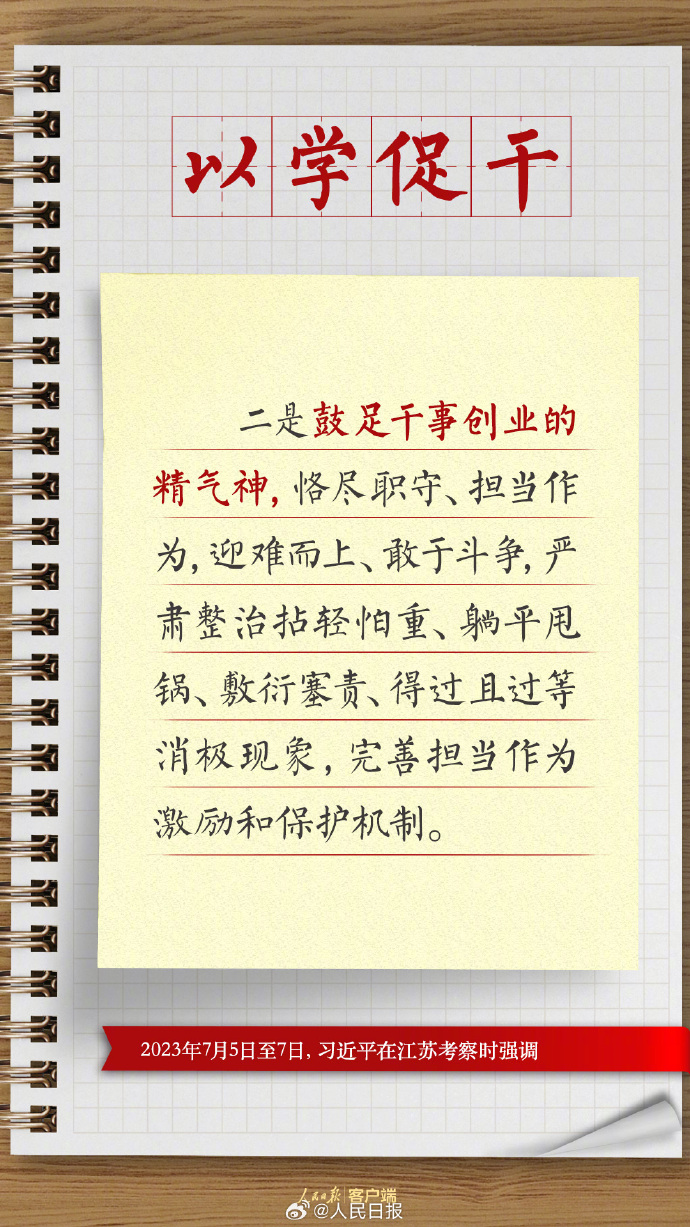 以学促干
二是鼓足干事创业的
精气神,恪尽职守、担当作
为,迎难而上、敢于斗争,严
肃整治拈轻怕重、躺平甩
锅、敷衍塞责、得过且过等
消极现象,完善担当作为
激励和保护机制。
2023年7月5日至7日,习近平在江苏考察时强调
人民日报 客户端
@人民日报